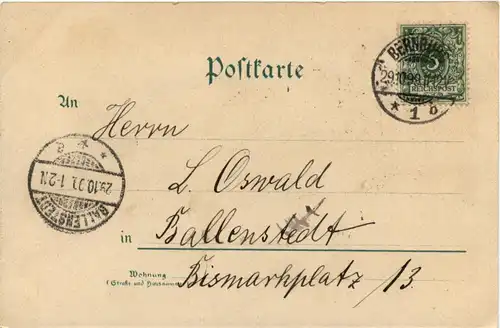 BERNBURG
5
29.10.99.11-12V.
REICHSPOST
* 1 b
Postkarte
An
Herrn
L. Oswald
BALLENSTEDT
29.10.99. 1-2N
* * a
in Ballenstedt
Wohnung
(Straße und Hausnummer)
Bismarkplatz 13.